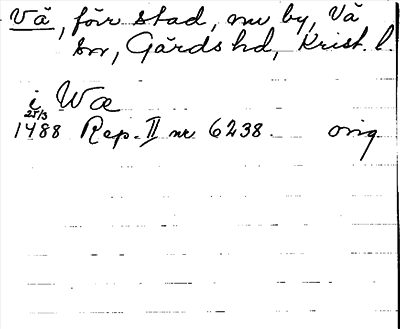 Vä, förr stad, nu by, Vä
sn, Gärds hd, Krist. l.
i Wæ
25/3
1488 Rep. II nr 6238. orig.